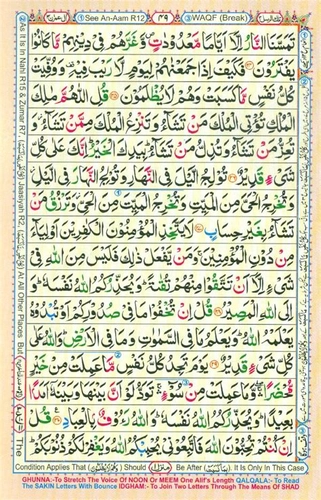 ①See An-Aam R12 ٣٩ ③WAQF (Break)
تَمَسَّنَا النَّارُ اِلَّاۤ اَيَّامًا مَّعْدُوْدٰتٍ وَّغَرَّهُمْ فِيْ دِيْنِهِمْ مَّا كَانُوْا
يَفْتَرُوْنَ ﴿٢٤﴾ فَكَيْفَ اِذَا جَمَعْنٰهُمْ لِيَوْمٍ لَّا رَيْبَ فِيْهِ وَوُفِّيَتْ
كُلُّ نَفْسٍ مَّا كَسَبَتْ وَهُمْ لَا يُظْلَمُوْنَ ﴿٢٥﴾ قُلِ اللّٰهُمَّ مٰلِكَ
الْمُلْكِ تُؤْتِي الْمُلْكَ مَنْ تَشَآءُ وَتَنْزِعُ الْمُلْكَ مِمَّنْ تَشَآءُ وَ
تُعِزُّ مَنْ تَشَآءُ وَتُذِلُّ مَنْ تَشَآءُ بِيَدِكَ الْخَيْرُ اِنَّكَ عَلٰى كُلِّ
شَيْءٍ قَدِيْرٌ ﴿٢٦﴾ تُوْلِجُ الَّيْلَ فِي النَّهَارِ وَتُوْلِجُ النَّهَارَ فِي الَّيْلِ
وَتُخْرِجُ الْحَيَّ مِنَ الْمَيِّتِ وَتُخْرِجُ الْمَيِّتَ مِنَ الْحَيِّ وَتَرْزُقُ مَنْ
تَشَآءُ بِغَيْرِ حِسَابٍ ﴿٢٧﴾ لَا يَتَّخِذِ الْمُؤْمِنُوْنَ الْكٰفِرِيْنَ اَوْلِيَآءَ
مِنْ دُوْنِ الْمُؤْمِنِيْنَ وَمَنْ يَّفْعَلْ ذٰلِكَ فَلَيْسَ مِنَ اللّٰهِ فِيْ
شَيْءٍ اِلَّاۤ اَنْ تَتَّقُوْا مِنْهُمْ تُقٰىةً وَيُحَذِّرُكُمُ اللّٰهُ نَفْسَهٗ وَ
اِلَى اللّٰهِ الْمَصِيْرُ ﴿٢٨﴾ قُلْ اِنْ تُخْفُوْا مَا فِيْ صُدُوْرِكُمْ اَوْ تُبْدُوْهُ
يَعْلَمْهُ اللّٰهُ وَيَعْلَمُ مَا فِي السَّمٰوٰتِ وَمَا فِي الْاَرْضِ وَاللّٰهُ عَلٰى
كُلِّ شَيْءٍ قَدِيْرٌ ﴿٢٩﴾ يَوْمَ تَجِدُ كُلُّ نَفْسٍ مَّا عَمِلَتْ مِنْ خَيْرٍ
مُّحْضَرًا وَّمَا عَمِلَتْ مِنْ سُوْٓءٍ تَوَدُّ لَوْ اَنَّ بَيْنَهَا وَبَيْنَهٗۤ اَمَدًۢا
بَعِيْدًا وَيُحَذِّرُكُمُ اللّٰهُ نَفْسَهٗ وَاللّٰهُ رَءُوْفٌۢ بِالْعِبَادِ ﴿٣٠﴾ قُلْ
اِنْ كُنْتُمْ تُحِبُّوْنَ اللّٰهَ فَاتَّبِعُوْنِيْ يُحْبِبْكُمُ اللّٰهُ وَيَغْفِرْ لَكُمْ
②As It Is In Nahl R15 & Zumar R7, Jaasiyah R2, At All Other Places But The
Condition Applies That Should Be After It Is Only In This Case
GHUNNA:-To Stretch The Voice Of NOON Or MEEM One Alif's Length QALQALA:- To Read
The SAKIN Letters With Bounce IDGHAM:- To Join Two Letters Through The Means Of SHAD